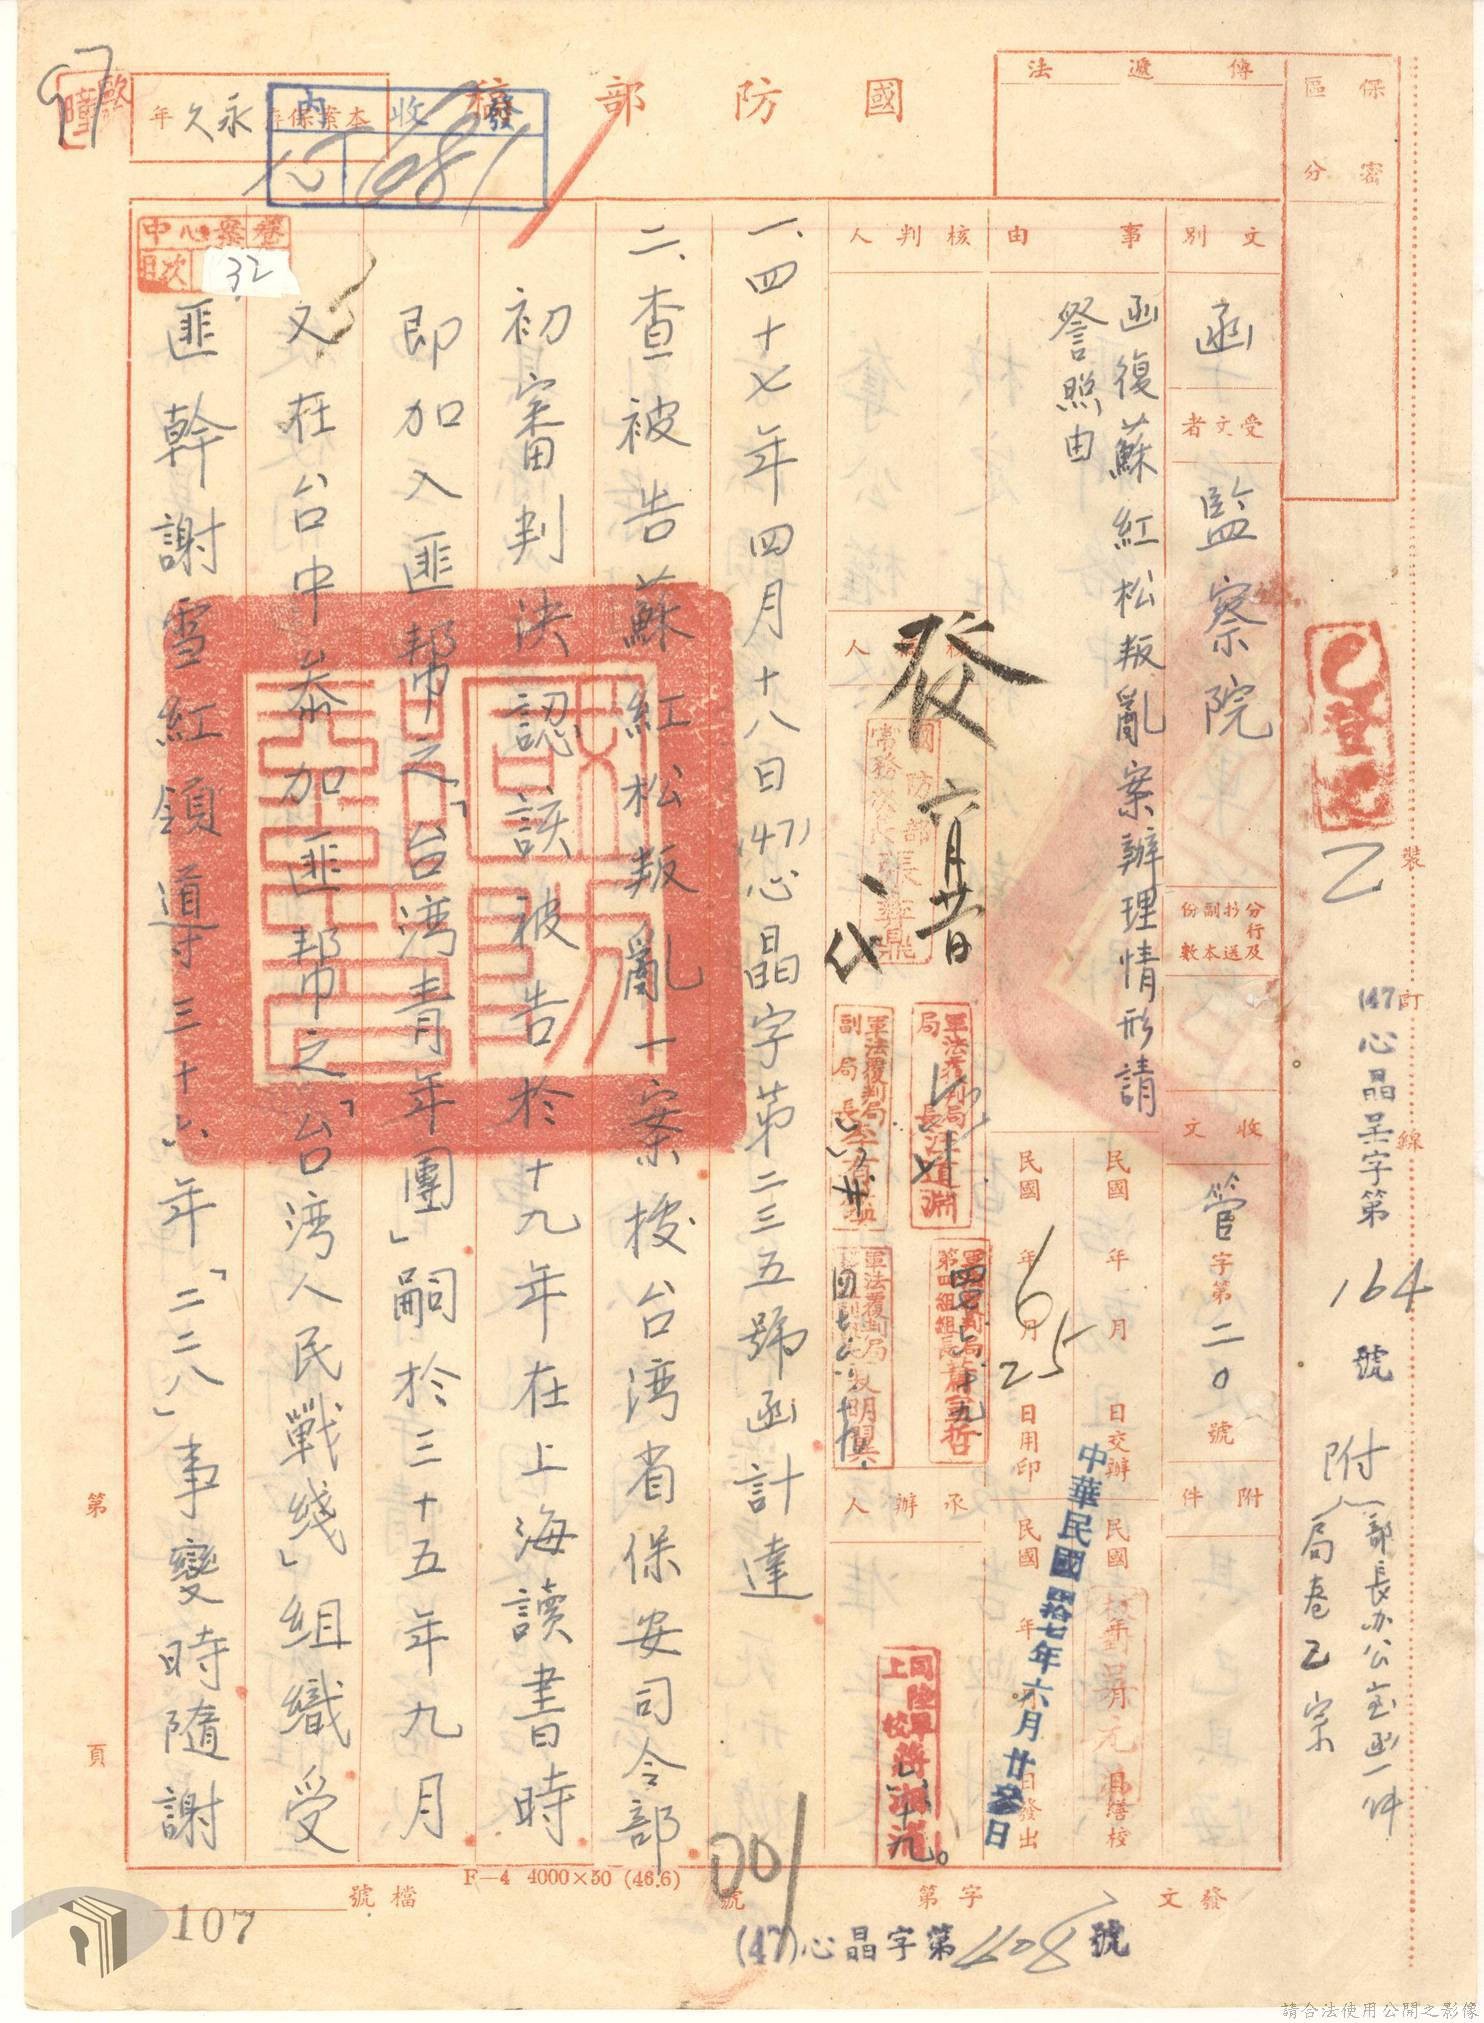 保密
區分
傳遞法
國防部稿
本案保存永久年
發收內
1681
97
中心案卷
目次 32
文別
函
受文者
監察院
分行及抄送副本份數
收文
管字第二0號
附件
事由
函復蘇紅松叛亂案辦理情形請
詧照由
民國 年 月 日交辦
民國 年 月 日繕校
民國 年 6月 25日用印
民國 年 月 日發出
中華民國四拾七年六月廿參日
核判人
發
六月廿一日
代
國防部常務次長張彝鼎
軍法覆判局局長汪道淵
軍法覆判局副局長
承辦人
同陸軍上校蔣湘浦
一、四十七年四月十八日(47)心晶字第二三五號函計達
二、查被告蘇紅松叛亂一案按台湾省保安司令部
初審判決認該被告於十九年在上海讀書時
即加入匪幇之「台湾青年團」嗣於三十五年九月
又在台中叅加匪幇之「台湾人民戰綫」組織受
匪幹謝雪紅領導三十六年「二二八」事變時隨謝
登記
乙
裝
訂
線
(47)心晶呈字第164號
附 部長办公室函一件
局卷乙宗
第 頁
F—4 4000×50 (46.6)
檔號
001
發文 字第 號
(47)心晶字第1108號
107
請合法使用公開之影像